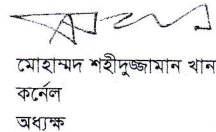 মোহাম্মদ শহীদুজ্জামান খান
কর্নেল
অধ্যক্ষ